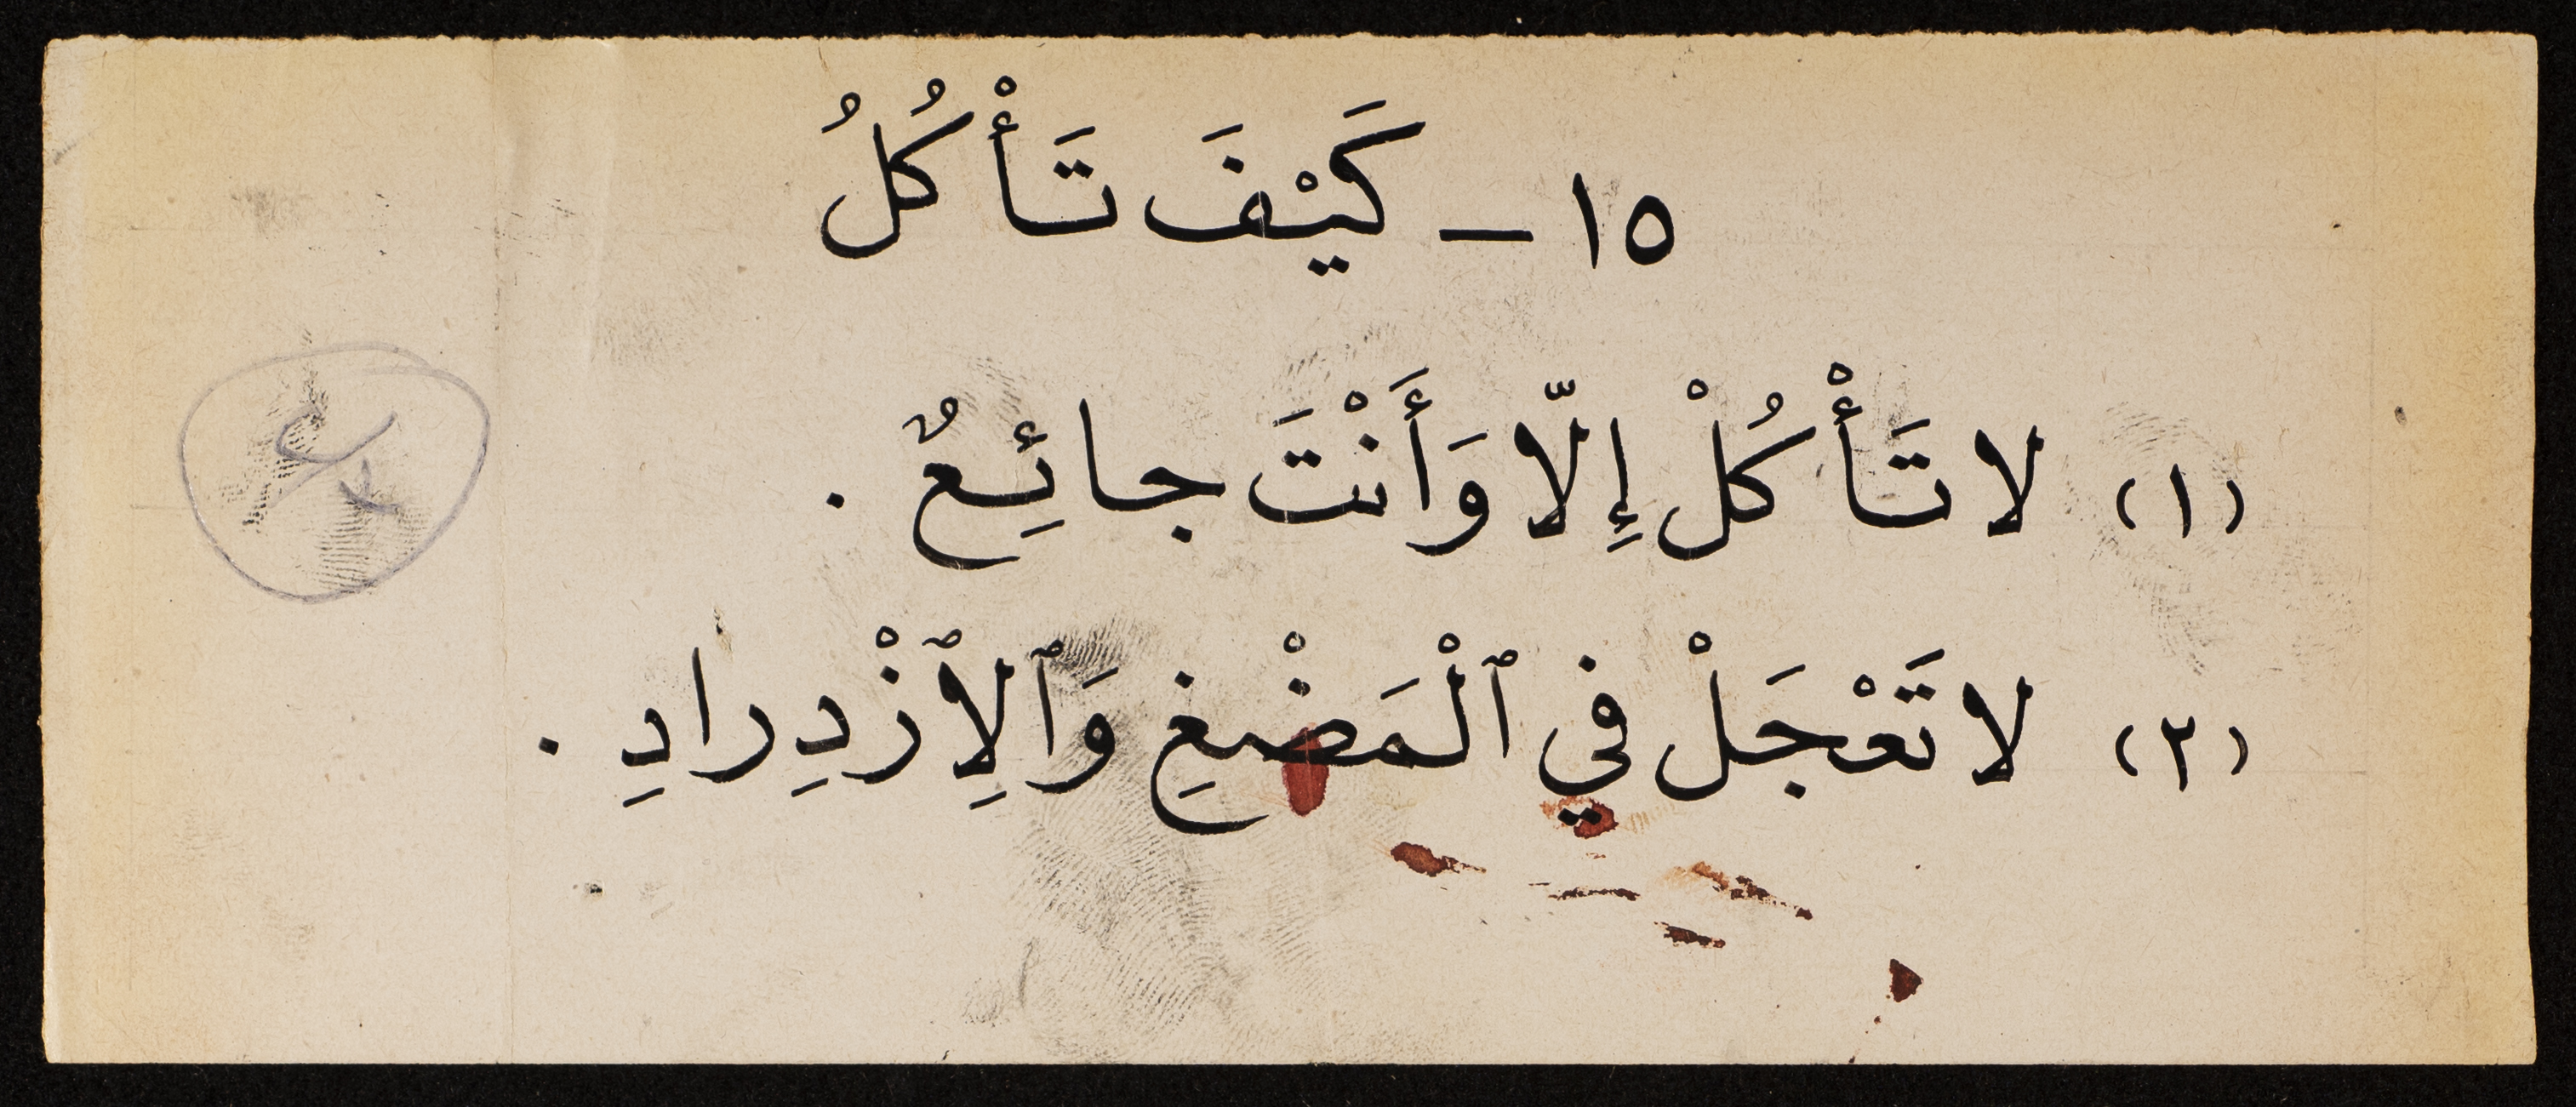 ١٥ – كَيْفَ تَأْكُلُ
(١) لا تَأْكُلْ إِلّا وَأَنْتَ جائِعٌ .
(٢) لا تَعْجَلْ في ٱلْمَضْغِ وَٱلِٱزْدِرادِ .